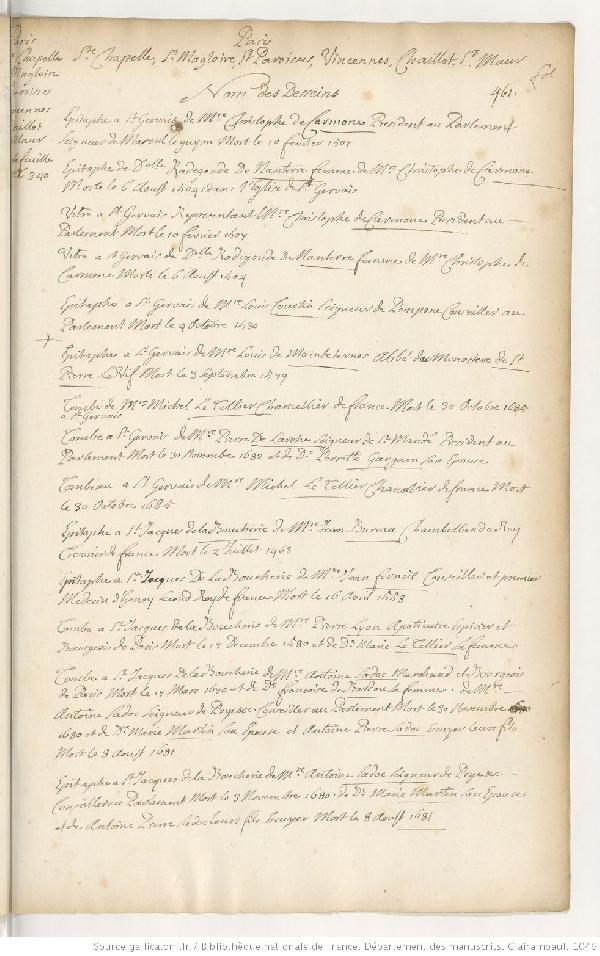 Paris
Ste Chapelle, St Magloire, St Parvisses, Vincennes, Chaillot, St Maur
fol
Nom des Desseins
461.
Paris
Chapelle
Magloire
Parvisses
Vincennes
Chaillot
Maur
feuille
340
Epitaphe a St Gervais de Mre Christophe de Carmone President au Parlement
Seigneur de Mareul le guyon Mort le 10 fevrier 1507
Epitaphe de Dlle Radegonde de Nanterre femme de Mre Christophe de Carmone
Morte le 6 Aoust 1504: dans l'Eglise de St Gervais
Vitre a St Gervais Representant Mre Christophe de Carmone President au
Parlement Mort le 10 fevrier 1507
Vitre a St Gervais de Dlle Radegonde de Nanterre femme de Mre Christophe de
Carmone Morte le 6 Aoust 1504
Epitaphe a St Gervais de Mre Louis Courtin Seigneur de Pompone Conseiller au
Parlement Mort le 9 Octobre 1580
Epitaphes a St Gervais de Mre Louis de Mainteternes Abbé du Monastere de St
Pierre Le Vif Mort le 3 Septembre 1579
Tombe de Mre Michel Le Tellier Chancellier de france Mort le 30 Octobre 1685
a St Gervais
Tombe a St Gervais de Mre Pierre De Laroche Seigneur de St Mandé President au
Parlement Mort le 30 Novembre 1682 et de De Pierrette Gargam son Epouse
Tombeau a St Gervais de Mre Michel Le Tellier Chancellier de france Mort
le 30 Octobre 1685
Epitaphe a St Jacques de la Boucherie de Mre Jean Bureau Chambellan du Roy
Tresorier de france Mort le 2 Juillet 1463
Epitaphe a St Jacques De La Boucherie de Mre Jean ferneil Conseiller et premier
Medecin d'Henry Second Roy de france Mort le 16 Avril 1558
Tombe a St Jacques de la Boucherie de Mre Pierre Lyon Apoticaire epicier et
Bourgeois de Paris Mort le 17 Decembre 1580 et de De Marie Le Tellier sa femme
Tombe a St Jacques de la Boucherie de Mre Antoine Sadoc Marchand et Bourgeois
de Paris Mort le 17 Mars 1670 et de De francoise de Bardou sa femme. de Mre
Antoine Sadoc Seigneur de Conseiller au Parlement Mort le 30 Novembre
1680 et de De Marie Martin son Epouse et Antoine Pierre Sadoc Ecuyer leurs fils
Mort le 8 Aoust 1681
Epitaphe a St Jacques de la Boucherie de Mre Antoine Sadoc Seigneur de
Conseiller au Parlement Mort le 3 Novembre 1680. de De Marie Martin son Epouse
et de Antoine Pierre Sadoc leurs fils Ecuyer Mort le 8 Aoust 1681
Source gallica.bnf.fr / Bibliothèque nationale de France. Département des manuscrits. Clairambault 1046